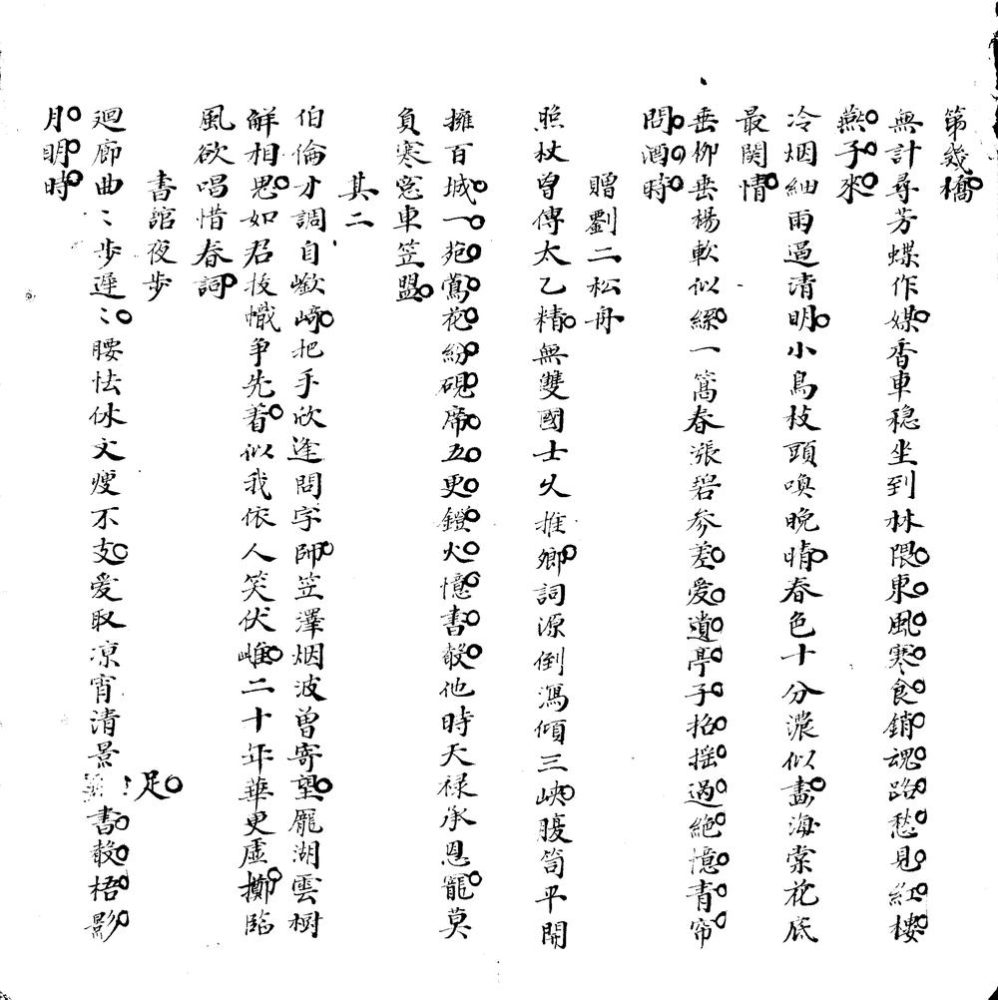 第幾橋
無計尋芳蝶作媒香車穏坐到林隈東風寒食銷魂路愁見紅樓
燕子來
冷烟細雨過清明小鳥枝頭喚晚晴春色十分濃似畫海棠花底
最関情
垂柳垂楊軟似縲一篙春漲碧参差愛遺亭子招摇過絶憶青帘
問酒時
贈劉二松舟
照杖曽傳太乙精無雙國士乆推鄉詞源倒瀉傾三峽腹笥平開
擁百城一苑鶯花紛硯席五更鐙火憶書𣪚他時天禄承恩寵莫
負寒窓車笠盟
其二
伯倫才調自嶔﨑把手欣逢問字師笠澤烟波曽寄望龎湖雲樹
觧相思如君拔幟爭先着似我依人笑伏雌二十年華更虛擲臨
風欲唱惜春詞
書舘夜步
廻廊曲〻步遲〻腰怯休文瘦不支爰取凉宵清景足書𣪚梧影
月明時